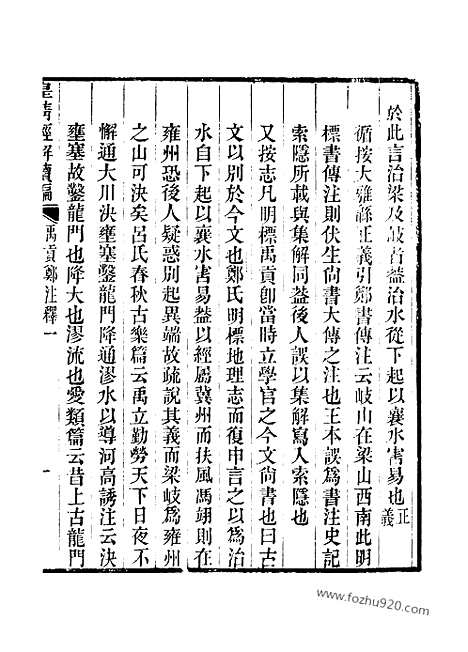 於此言治梁及岐者葢治水從下起以襄水害易也正義
循按大雅緜正義引鄭書傳注云岐山在梁山西南此明
標書傳注則伏生尚書大傳之注也王本誤爲書注史記
索隱所載與集解同葢後人誤以集解寫入索隱也
又按志凡明標禹貢卽當時立學官之今文尚書也曰古
文以别於今文也鄭氏明標地理志而復申言之以爲治
水自下起以襄水害易葢以經屬冀州而扶風馮翊則在
雍州恐後人疑惑别起異端故疏說其義而梁岐爲雍州
之山可決矣呂氏春秋古樂篇云禹立勤勞天下日夜不
懈通大川決壅塞鑿龍門降通漻水以導河高誘注云決
壅塞故鑿龍門也降大也漻流也愛類篇云昔上古龍門
皇清經解續編
禹貢鄭注釋一
一
www.fozhu920.com